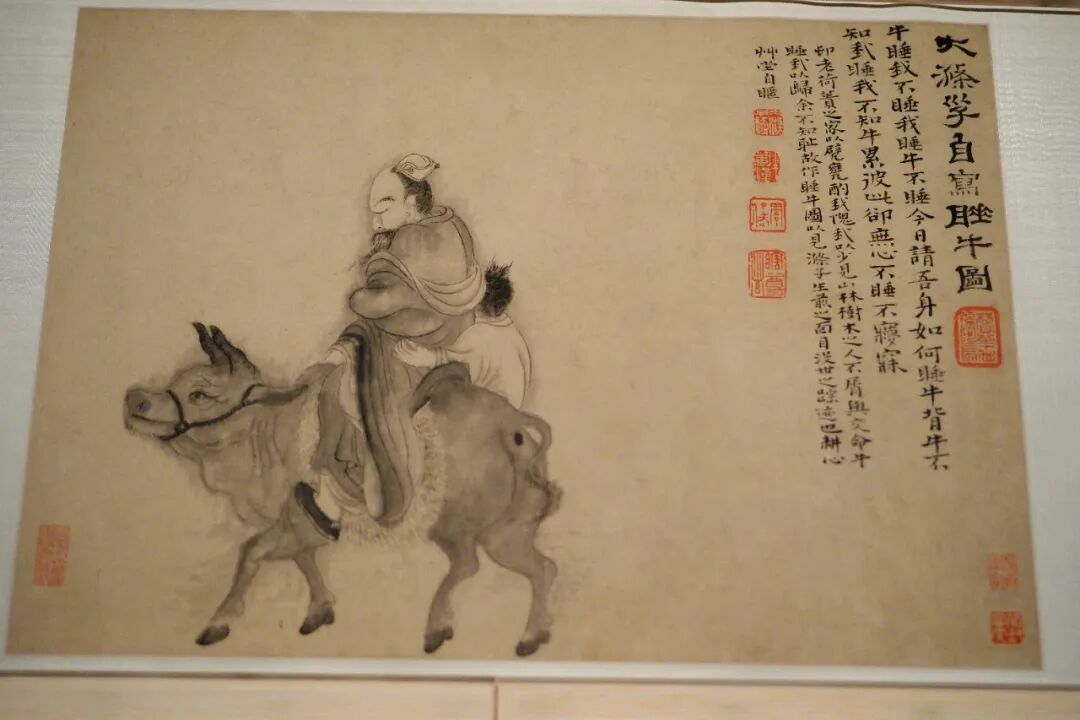 大滌子自寫睡牛圖
牛睡我不睡我睡牛不睡今日請吾身如何睡牛背牛不
知我睡我不知牛累彼此卻無心不睡不寢寐
邨老荷蕢之家以甓甕酌我愧我以少見山林樹木之人不屑與交命牛
睡我以歸余不知耻故作睡牛圖以見滌子生前之面目沒世之踪迹也耕心
艸堂自嘔